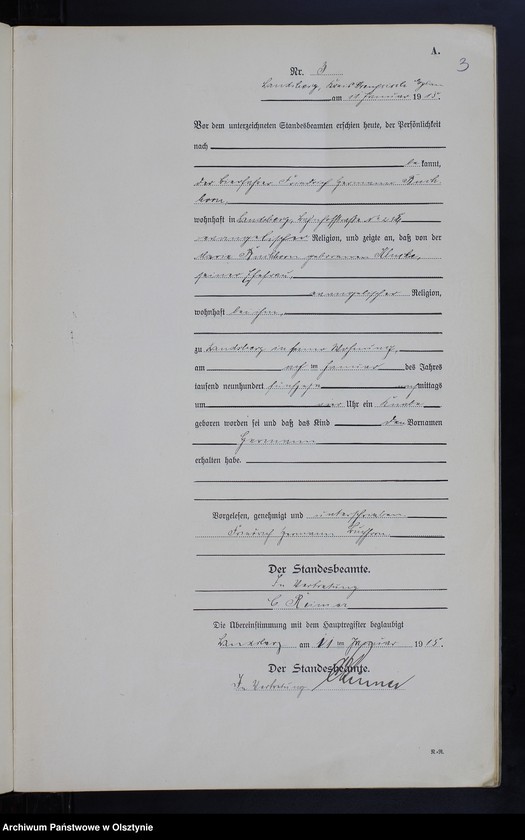 A.
3
Nr. 3
Landsberg, Kreis Preussisch Eylau
am 11 Januar 1915.
Vor dem unterzeichneten Standesbeamten erschien heute, der Persönlichkeit
nach
be kannt,
der Friedrich Hermann
wohnhaft in Landsberg, Bahnhofstraße No
evangelischer Religion, und zeigte an, daß von der
Maria geborenen
seiner Ehefrau,
evangelischer Religion,
wohnhaft bei ihm,
zu Landsberg in seiner Wohnung,
am ten Januar des Jahres
tausend neunhundert fünfzehn mittags
um vier Uhr ein Knabe
geboren worden sei und daß das Kind den Vornamen
Hermann
erhalten habe.
Vorgelesen, genehmigt und unterschrieben
Friedrich Hermann
Der Standesbeamte.
In Vertretung
C Reimer
Die Übereinstimmung mit dem Hauptregister beglaubigt
Landsberg am 11 ten Januar 1915.
Der Standesbeamte.
In Vertretung CReimer
R.-R.
Archiwum Państwowe w Olsztynie